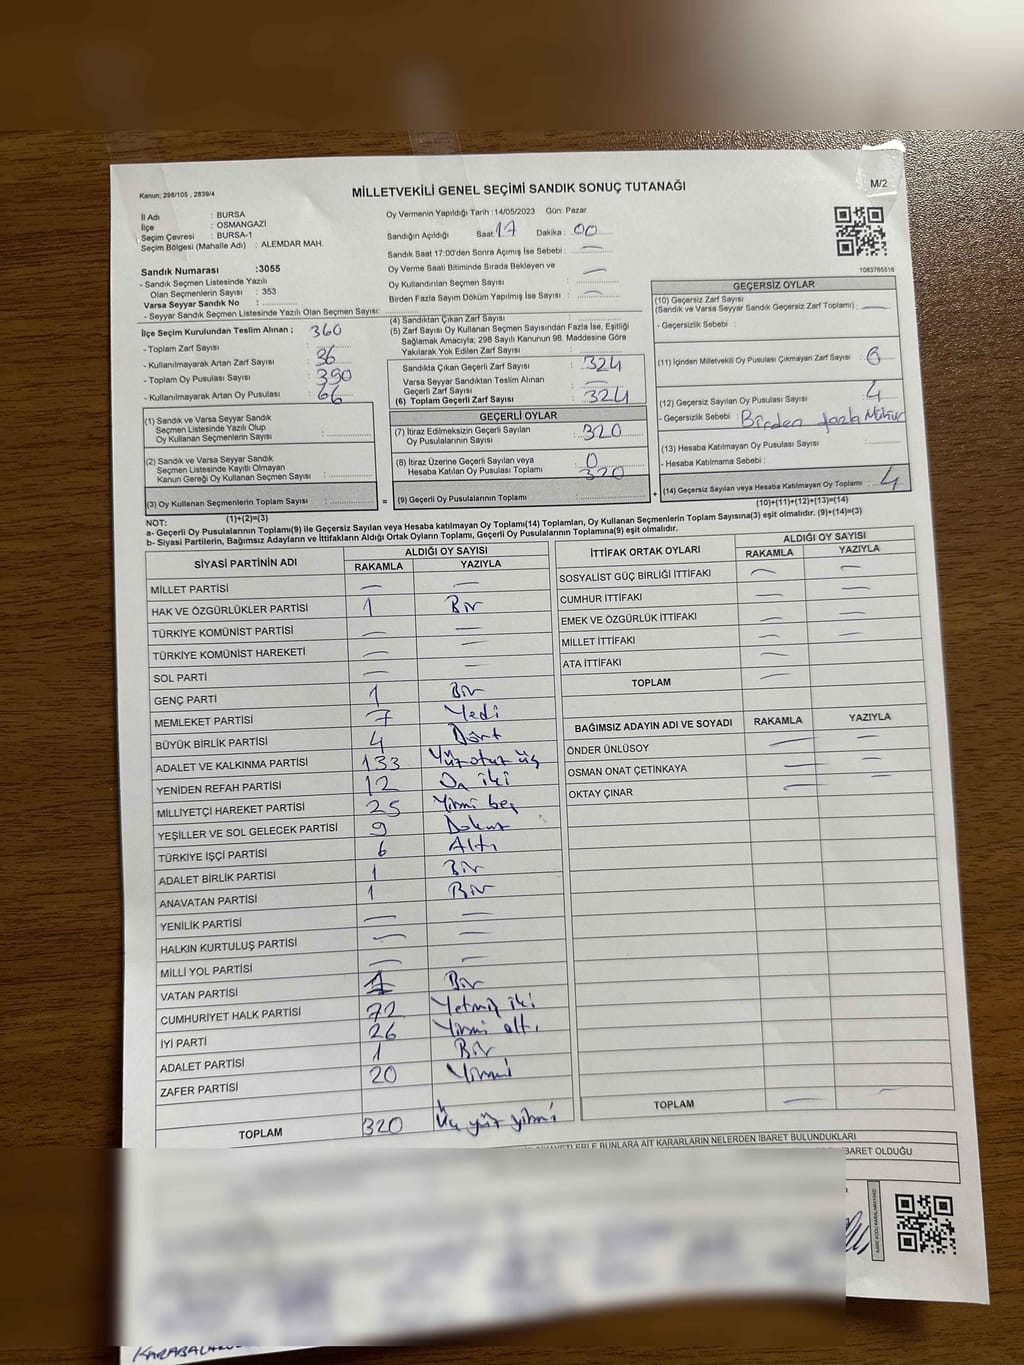 Kanun; 298/105 , 2839/4
MİLLETVEKİLİ GENEL SEÇİMİ SANDIK SONUÇ TUTANAĞI
M/2
İl Adı : BURSA
İlçe : OSMANGAZİ
Seçim Çevresi : BURSA-1
Seçim Bölgesi (Mahalle Adı) : ALEMDAR MAH.
Oy Vermenin Yapıldığı Tarih :14/05/2023 Gün: Pazar
Sandığın Açıldığı Saat: 17 Dakika : 00
Sandık Saat 17:00'den Sonra Açımış İse Sebebi : —
Oy Verme Saati Bitiminde Sırada Bekleyen ve
Oy Kullandırılan Seçmen Sayısı : —
Birden Fazla Sayım Döküm Yapılmış İse Sayısı : —
1083765516
Sandık Numarası :3055
- Sandık Seçmen Listesinde Yazılı
Olan Seçmenlerin Sayısı : 353
Varsa Seyyar Sandık No :
- Seyyar Sandık Seçmen Listesinde Yazılı Olan Seçmen Sayısı:
İlçe Seçim Kurulundan Teslim Alınan ;
- Toplam Zarf Sayısı : 360
- Kullanılmayarak Artan Zarf Sayısı : 36
- Toplam Oy Pusulası Sayısı : 390
- Kullanılmayarak Artan Oy Pusulası : 66
(1) Sandık ve Varsa Seyyar Sandık
Seçmen Listesinde Yazılı Olup
Oy Kullanan Seçmenlerin Sayısı :
(2) Sandık ve Varsa Seyyar Sandık
Seçmen Listesinde Kayıtlı Olmayan
Kanun Gereği Oy Kullanan Seçmen Sayısı :
(3) Oy Kullanan Seçmenlerin Toplam Sayısı :
(1)+(2)=(3)
(4) Sandıktan Çıkan Zarf Sayısı :
(5) Zarf Sayısı Oy Kullanan Seçmen Sayısından Fazla İse, Eşitliği
Sağlamak Amacıyla; 298 Sayılı Kanunun 98. Maddesine Göre
Yakılarak Yok Edilen Zarf Sayısı :
Sandıkta Çıkan Geçerli Zarf Sayısı : 324
Varsa Seyyar Sandıktan Teslim Alınan
Geçerli Zarf Sayısı : —
(6) Toplam Geçerli Zarf Sayısı : 324
GEÇERLİ OYLAR
(7) İtiraz Edilmeksizin Geçerli Sayılan
Oy Pusulalarının Sayısı : 320
(8) İtiraz Üzerine Geçerli Sayılan veya
Hesaba Katılan Oy Pusulası Toplamı : 0
= (9) Geçerli Oy Pusulalarının Toplamı : 320
GEÇERSİZ OYLAR
(10) Geçersiz Zarf Sayısı
(Sandık ve Varsa Seyyar Sandık Geçersiz Zarf Toplamı) : —
- Geçersizlik Sebebi :
(11) İçinden Milletvekili Oy Pusulası Çıkmayan Zarf Sayısı : 0
(12) Geçersiz Sayılan Oy Pusulası Sayısı : 4
- Geçersizlik Sebebi : Birden fazla Mühür
(13) Hesaba Katılmayan Oy Pusulası Sayısı :
- Hesaba Katılmama Sebebi :
+ (14) Geçersiz Sayılan veya Hesaba Katılmayan Oy Toplamı : 4
(10)+(11)+(12)+(13)=(14)
NOT:
a- Geçerli Oy Pusulalarının Toplamı(9) ile Geçersiz Sayılan veya Hesaba katılmayan Oy Toplamı(14) Toplamları, Oy Kullanan Seçmenlerin Toplam Sayısına(3) eşit olmalıdır. (9)+(14)=(3)
b- Siyasi Partilerin, Bağımsız Adayların ve İttifakların Aldığı Ortak Oyların Toplamı, Geçerli Oy Pusulalarının Toplamına(9) eşit olmalıdır.
SİYASİ PARTİNİN ADI ALDIĞI OY SAYISI
RAKAMLA YAZIYLA
MİLLET PARTİSİ — —
HAK VE ÖZGÜRLÜKLER PARTİSİ 1 Bir
TÜRKİYE KOMÜNİST PARTİSİ — —
TÜRKİYE KOMÜNİST HAREKETİ — —
SOL PARTİ — —
GENÇ PARTİ 1 Bir
MEMLEKET PARTİSİ 7 Yedi
BÜYÜK BİRLİK PARTİSİ 4 Dört
ADALET VE KALKINMA PARTİSİ 133 Yüz otuz üç
YENİDEN REFAH PARTİSİ 12 On iki
MİLLİYETÇİ HAREKET PARTİSİ 25 Yirmi beş
YEŞİLLER VE SOL GELECEK PARTİSİ 9 Dokuz
TÜRKİYE İŞÇİ PARTİSİ 6 Altı
ADALET BİRLİK PARTİSİ 1 Bir
ANAVATAN PARTİSİ 1 Bir
YENİLİK PARTİSİ — —
HALKIN KURTULUŞ PARTİSİ — —
MİLLİ YOL PARTİSİ — —
VATAN PARTİSİ 1 Bir
CUMHURİYET HALK PARTİSİ 72 Yetmiş iki
İYİ PARTİ 26 Yirmi altı
ADALET PARTİSİ 1 Bir
ZAFER PARTİSİ 20 Yirmi
TOPLAM 320 Üç yüz yirmi
İTTİFAK ORTAK OYLARI ALDIĞI OY SAYISI
RAKAMLA YAZIYLA
SOSYALİST GÜÇ BİRLİĞİ İTTİFAKI — —
CUMHUR İTTİFAKI — —
EMEK VE ÖZGÜRLÜK İTTİFAKI — —
MİLLET İTTİFAKI — —
ATA İTTİFAKI —
TOPLAM —
BAĞIMSIZ ADAYIN ADI VE SOYADI RAKAMLA YAZIYLA
ÖNDER ÜNLÜSOY — —
OSMAN ONAT ÇETİNKAYA — —
OKTAY ÇINAR — —
TOPLAM — —
BUNLARA AİT KARARLARIN NELERDEN İBARET BULUNDUKLARI
İBARET OLDUĞU